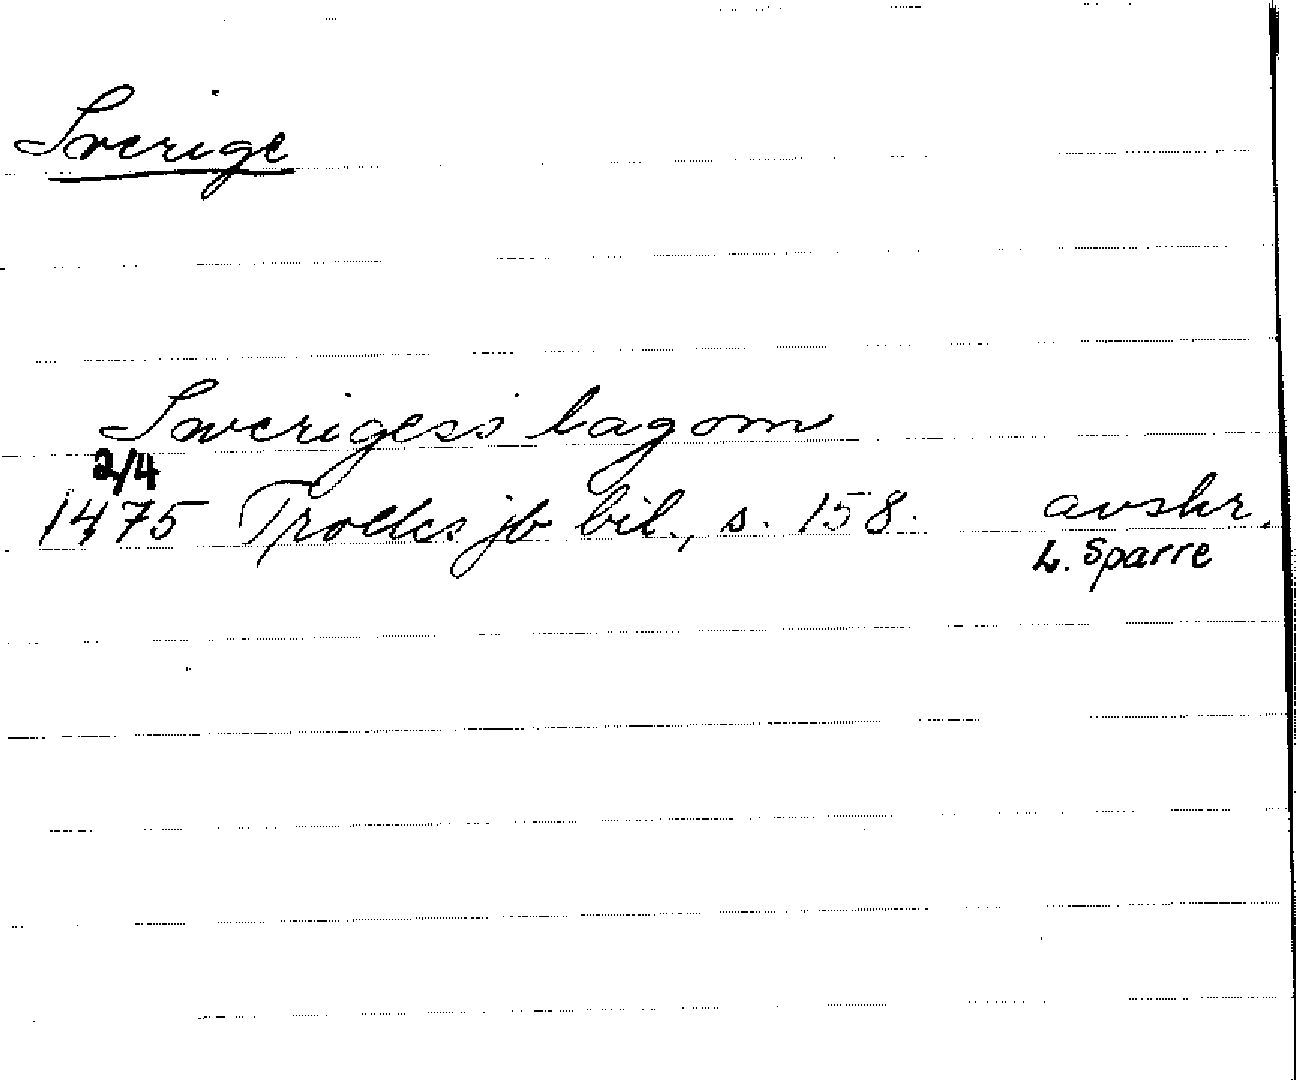 Sverige
Swerigess lagom
2/4
1475 Trolles jb bil., s. 158. avskr.
L. Sparre